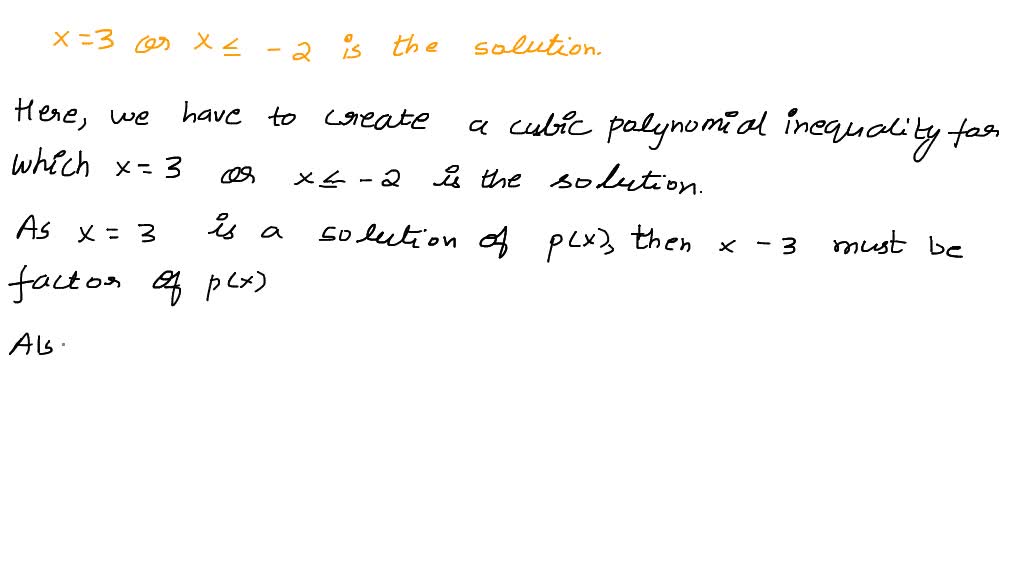 x = 3 or x ≤ -2 is the solution.
Here, we have to create a cubic polynomial inequality for
which x = 3 or x ≤ -2 is the solution.
As x = 3 is a solution of p(x), then x - 3 must be
factor of p(x)
Als